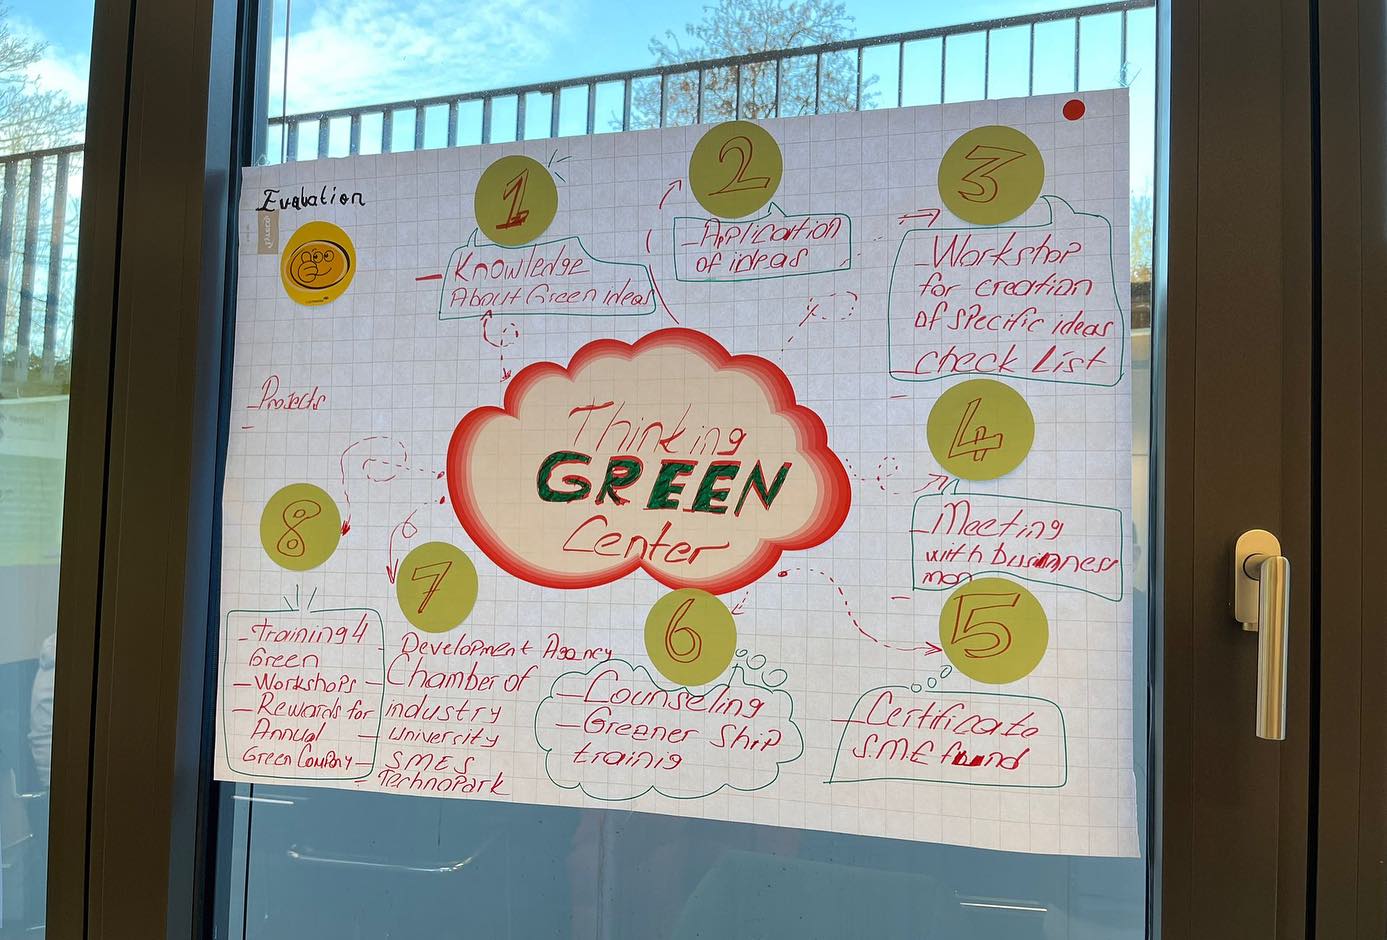 Evaluation
1
- Knowledge
About Green ideas
2
- Application
of ideas
3
- Workshop
for creation
of specific ideas
- check List
Projects
Thinking
GREEN
Center
4
- Meeting
with businness
man
5
- Certificate
S.M.E found
6
- Counseling
- Greener Ship
trainig
7
- Development Agency
- Chamber of
industry
- University
- SMES
- Technopark
8
- Training 4
Green
- Workshops
- Rewards for
Annual
Green Company